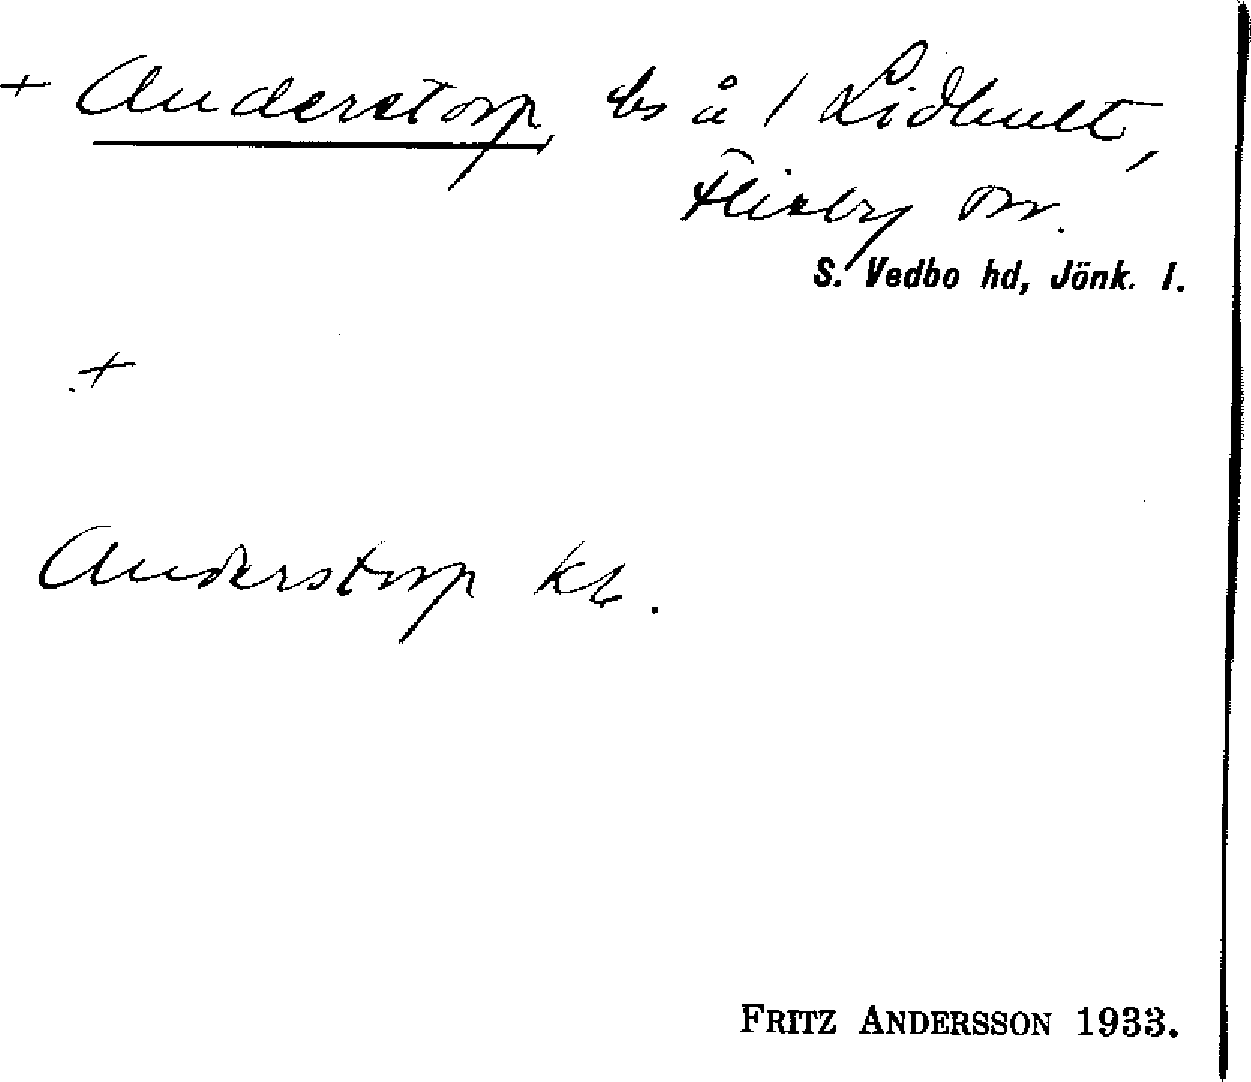 + Anderstorp, ds å 1 Lidhult,
Flisby sn.
S. Vedbo hd, Jönk. l.
+
Anderstorp kb.
FRITZ ANDERSSON 1933.